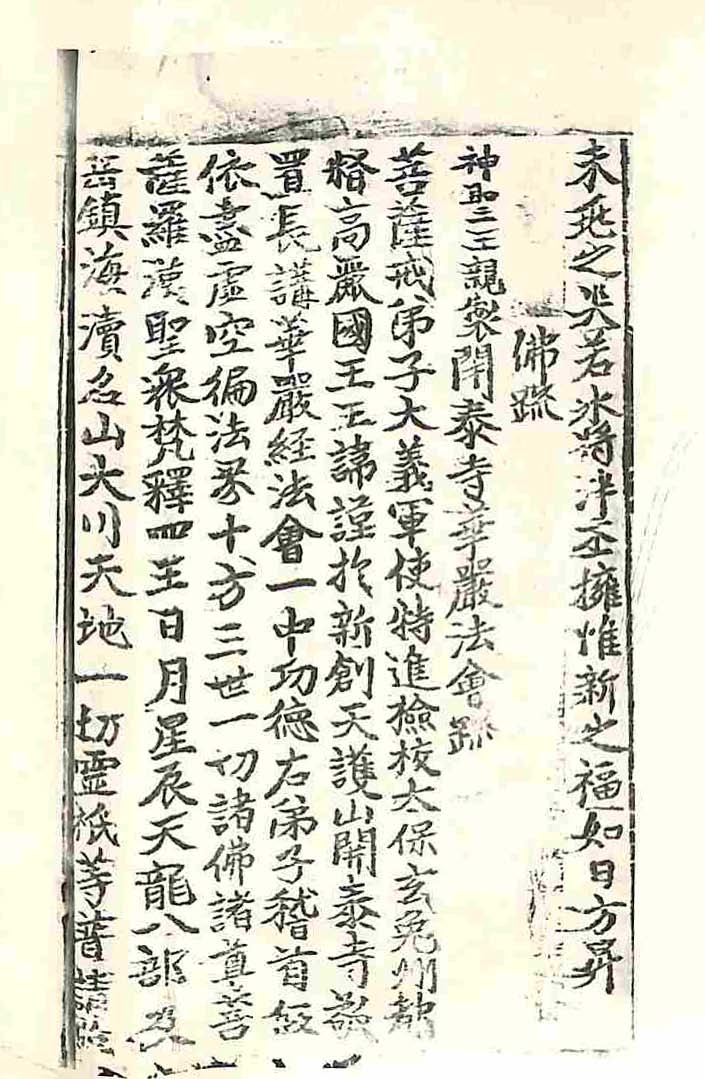 未乖之災若氷將泮丕擁惟新之福如日方昇
佛䟽
神聖王親製開泰寺華嚴法會䟽
菩薩戒弟子大義軍使特進檢校太保玄兔州都
督高麗國王王諱謹於新創天護山開泰寺
置長講華嚴経法會一中功德右弟子稽首歸
依盡虛空徧法界十方三世一切諸佛諸尊菩
薩羅漢聖衆梵釋四王日月星辰天龍八部及
岳鎮海瀆名山大川天地一切靈祇等普請